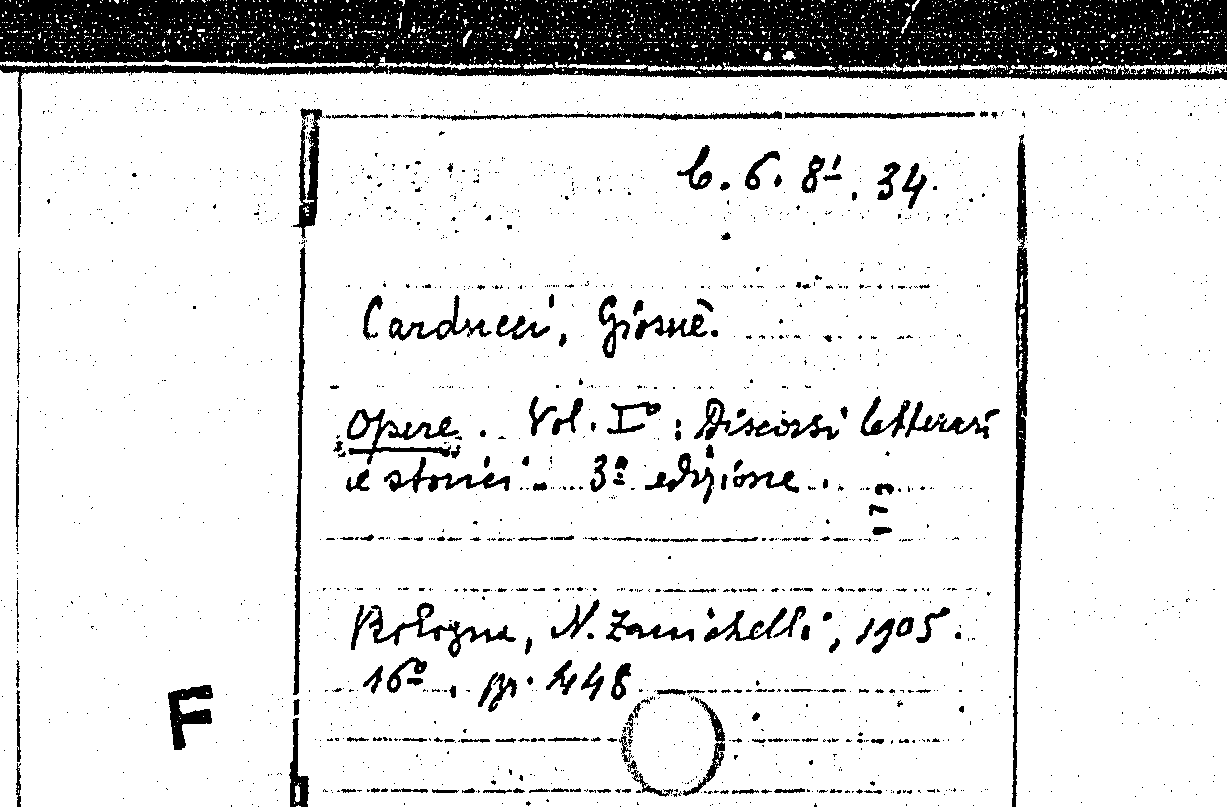 6. 6. 8¹. 34.
Carducci, Giosuè.
Opere. Vol. I° : Discorsi letterari
e storici. 3ª edizione.
173
Bologna, N. Zanichelli, 1905.
16º. pp. 448
F